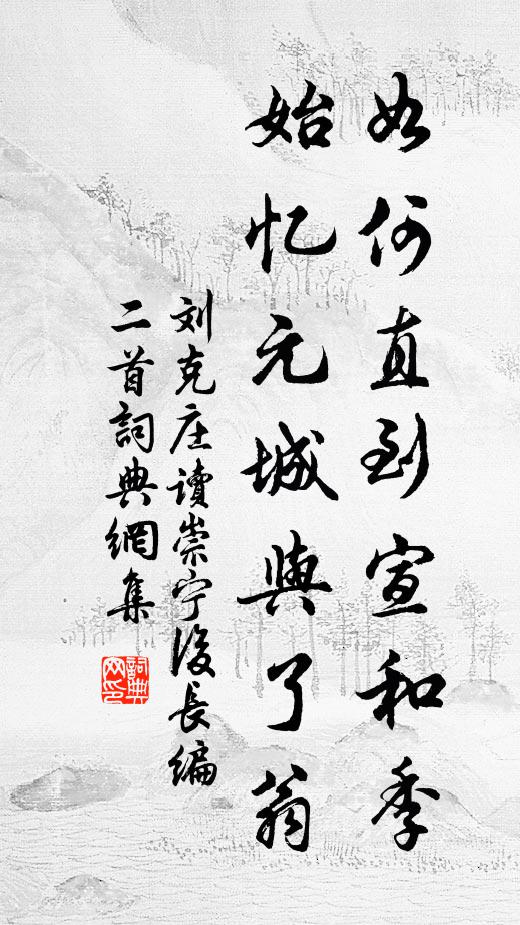 如何直到宣和季
始忆元城與了翁
刘克庄读崇宁后長编
二首詞典網集
詞典網印